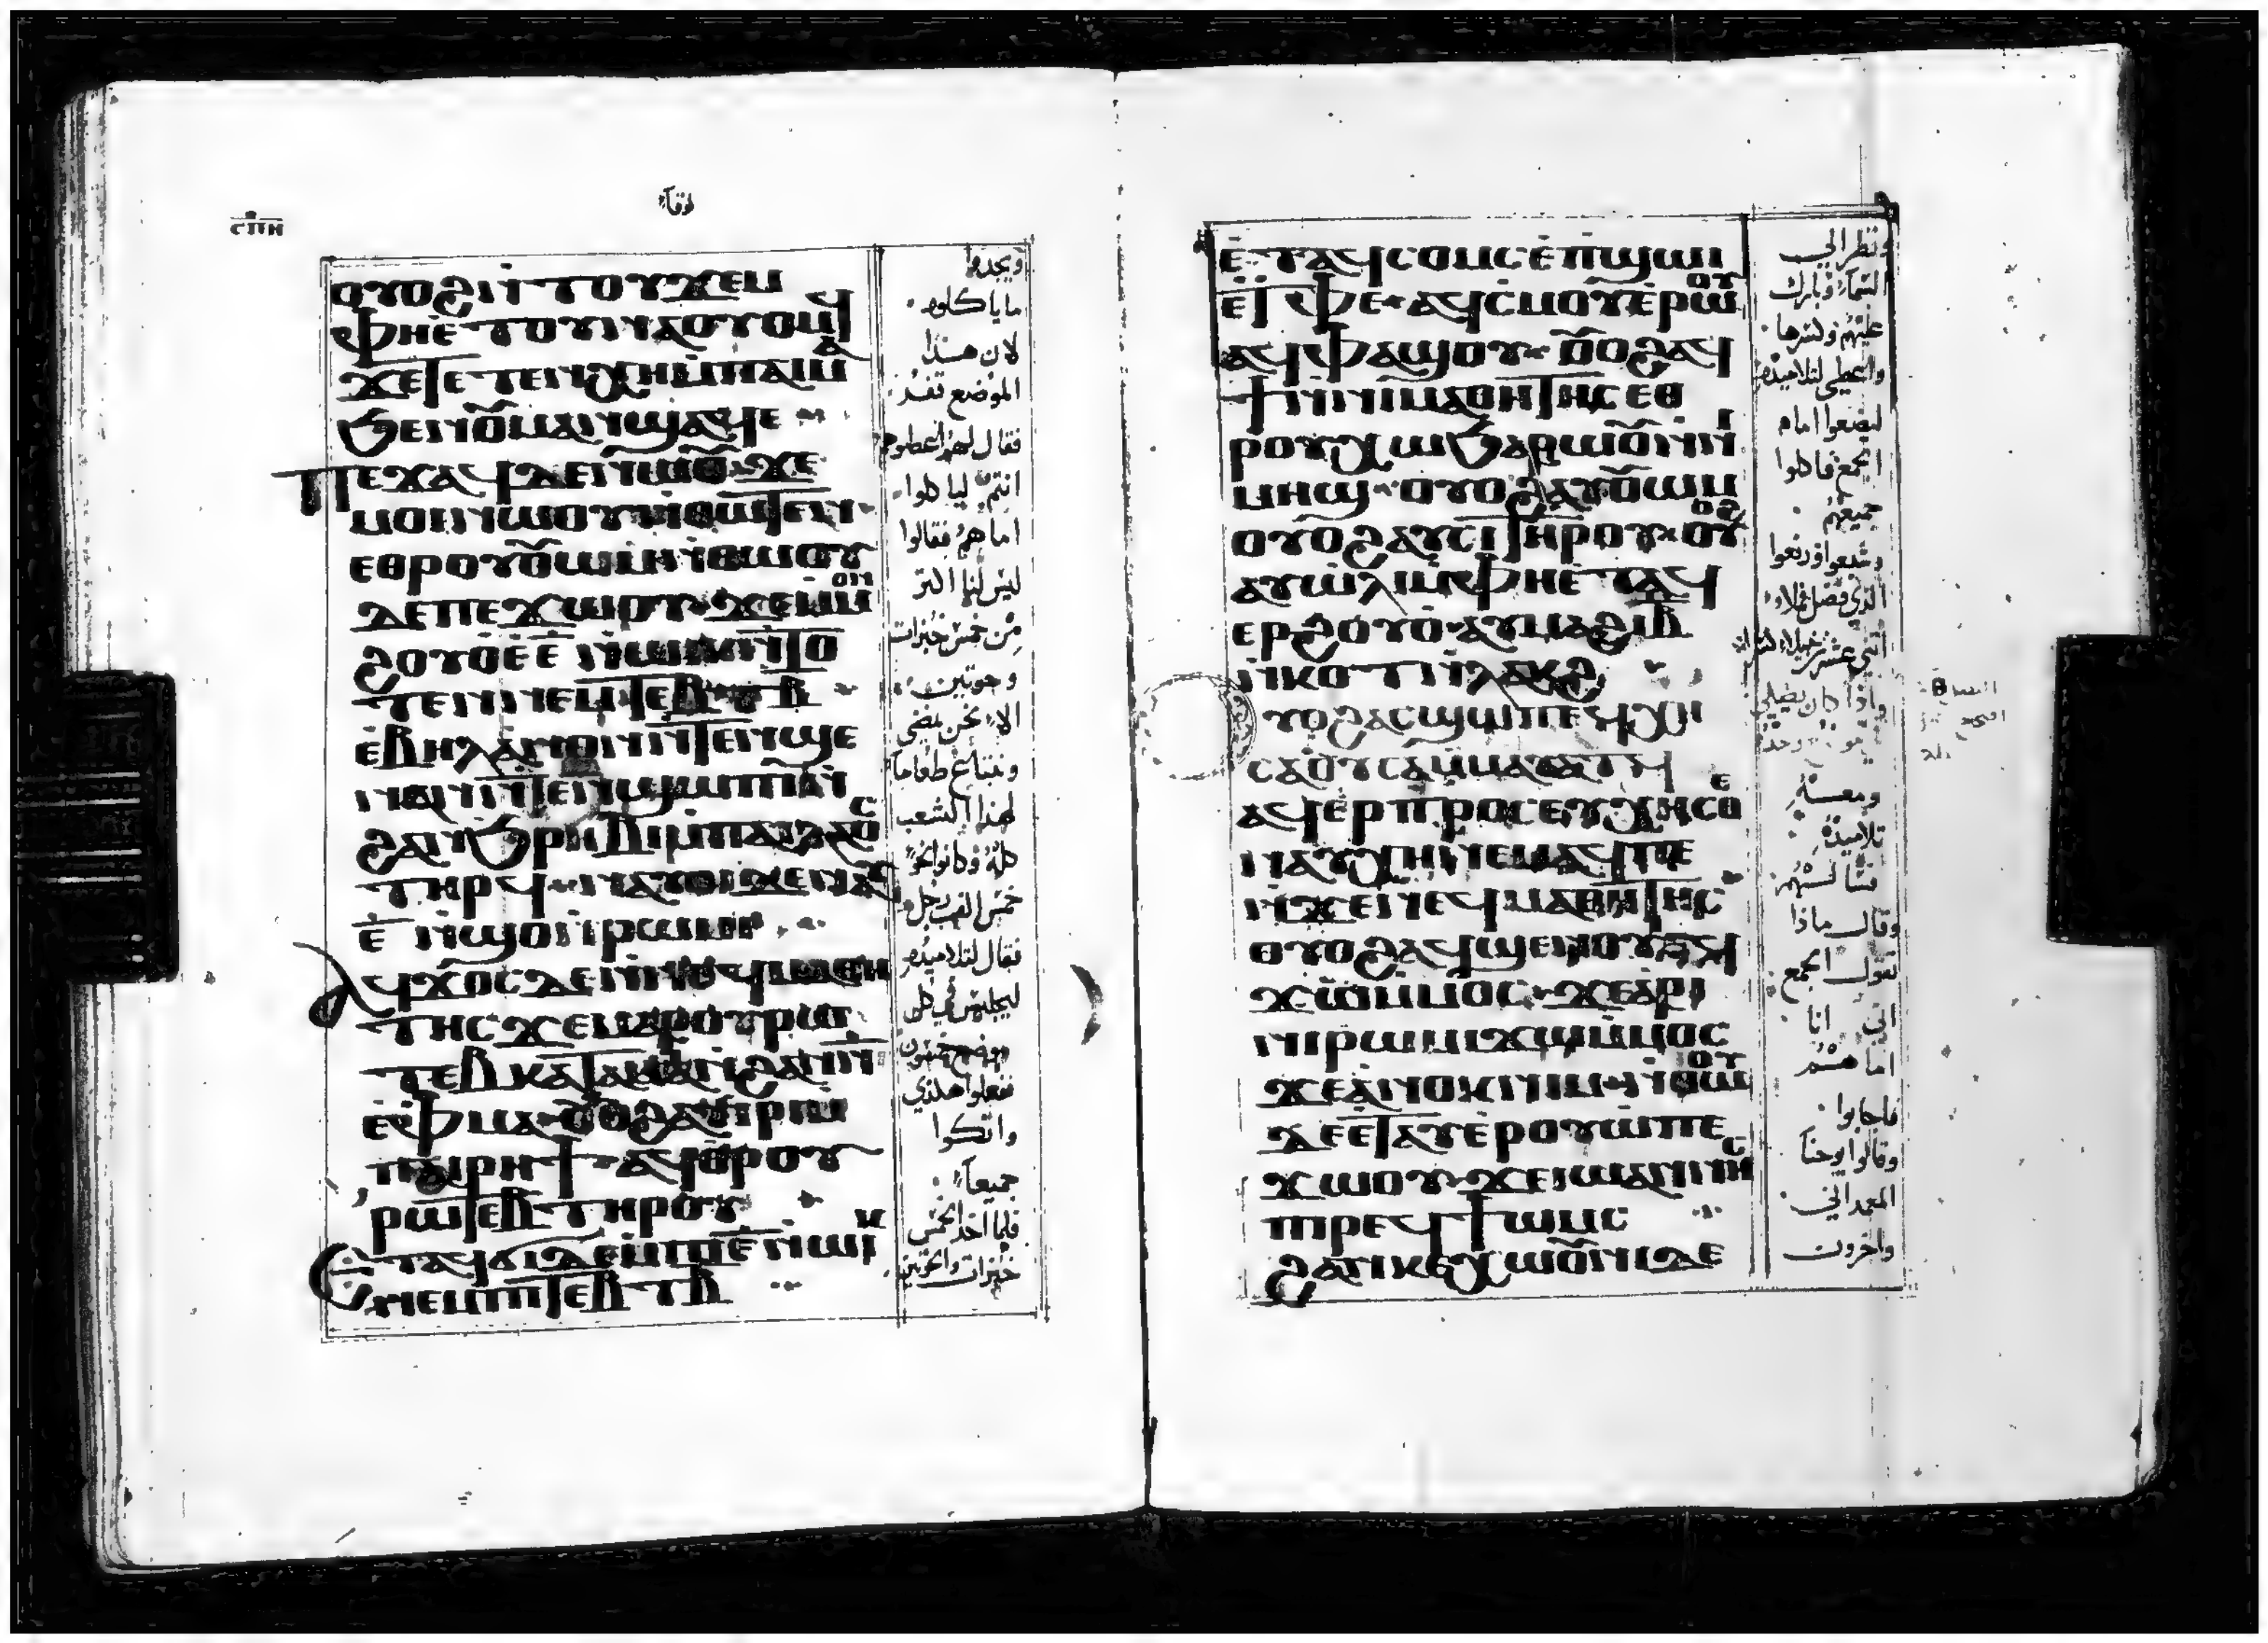 ⲥⲡⲏ
لوقا
ⲟⲩⲟϩ ⲛ̀ⲧⲟⲩϫⲉⲙ
ⲫⲏⲉ̀ⲧⲟⲩⲛⲁⲟⲩⲟⲙϥ
ϫⲉⲧⲉⲧⲉⲛⲭⲏⲙ̀ⲡⲁⲓⲙⲁ
ϧⲉⲛⲟⲩⲙⲁⲛ̀ϣⲁϥⲉ
ⲡⲉϫⲁϥ ⲇⲉ ⲛⲱⲟⲩ ϫⲉ
ⲙⲟⲓ ⲛⲱⲟⲩ ⲛ̀ⲑⲱⲧⲉⲛ
ⲉⲑⲣⲟⲩⲟⲩⲱⲙ ⲛ̀ⲑⲱⲟⲩ
ⲇⲉ ⲡⲉϫⲱⲟⲩ ϫⲉ ⲙ̀ⲙⲟⲛ
ϩⲟⲩⲟ̀ ⲉ̀ ⲉ̄ ⲛ̀ⲱⲓⲕ ⲛ̀ⲧⲟ
ⲧⲉⲛ ⲛⲉⲙ ⲧⲉⲃⲧ ⲃ̄
ⲉ̀ⲃⲏⲗ ⲁⲛⲟⲛ ⲛ̀ⲧⲉⲛϣⲉ
ⲛⲁⲛ ⲛ̀ⲧⲉⲛϣⲱⲡ ⲛ̀
ϩⲁⲛϧⲣⲏⲟⲩⲓ̀ ⲙ̀ⲡⲁⲓⲗⲁⲟⲥ
ⲧⲏⲣϥ ⲛⲁⲩⲟⲓ ⲇⲉ ⲛⲁⲩ
ⲉ̄ ⲛ̀ϣⲟ ⲛ̀ⲣⲱⲙⲓ
ⲁϥϫⲟⲥ ⲇⲉ ⲛ̀ⲛⲉϥⲙⲁⲑⲏ
ⲧⲏⲥ ϫⲉ ⲙⲁⲣⲟⲩⲣⲱ
ⲧⲉⲃ ⲕⲁⲧⲁ ⲙⲁ ⲛ̀ϩⲁⲛ ⲛ̄
ⲉ̀ⲫⲙⲁ ⲟⲩⲟϩ ⲁⲩⲓⲣⲓ ⲙ̀
ⲡⲁⲓⲣⲏϯ ⲁϥⲑⲣⲟⲩ
ⲣⲱⲧⲉⲃ ⲧⲏⲣⲟⲩ
ⲉ̀ⲧⲁϥϭⲓ ⲇⲉ ⲙ̀ⲡⲓ ⲉ̄ ⲛ̀ⲱⲓⲕ
ⲛⲉⲙ ⲡⲓⲧⲉⲃⲧ ⲃ̄
ويجدوا
ما ياكلوه
لان هذا
الموضع قفر
فقال لهم اعطوهم
انتم لياكلوا
اما هم فقالوا
ليس لنا اكثر
من خمس خبزات
وحوتين
الا نحن نمضي
ونبتاع طعاما
لهذا الشعب
كله وكانوا نحو
خمس الف رجل
فقال لتلاميذه
ففعلوا هكذي
واتكوا
جميعا
فلما اخذ الخمس
خبزات والحوتين
ⲉ̀ⲧⲁϥⲥⲟⲙⲥ ⲉ̀ⲡϣⲱⲓ
ⲉ̀ⲧⲫⲉ ⲁϥⲥⲙⲟⲩ ⲉ̀ⲣⲱⲟⲩ
ⲁϥⲫⲁϣⲟⲩ ⲟⲩⲟϩ ⲁϥ
ϯ ⲛ̀ⲛⲓⲙⲁⲑⲏⲧⲏⲥ ⲉⲑ
ⲣⲟⲩⲭⲱ ϧⲁⲣⲱⲟⲩ ⲛ̀ⲛⲓ
ⲙⲏϣ ⲟⲩⲟϩ ⲁⲩⲟⲩⲱⲙ
ⲟⲩⲟϩ ⲁⲩⲥⲓ ⲧⲏⲣⲟⲩ ⲟⲩⲟϩ
ⲁⲩⲱ̀ⲗⲓ ⲙ̀ⲫⲏⲉ̀ⲧⲁϥ
ⲉⲣϩⲟⲩⲟ̀ ⲁⲩⲙⲁϩ ⲓ̅ⲃ̅
ⲛ̀ⲕⲟⲧ ⲛ̀ⲗⲁⲕϩ
ⲟⲩⲟϩ ⲁⲥϣⲱⲡⲓ ⲉϥⲭⲏ
ⲥⲁⲟⲩⲥⲁ ⲙ̀ⲙⲁⲩⲁⲧϥ
ⲁϥⲉⲣⲡⲣⲟⲥⲉⲩⲭⲏⲥⲑⲉ
ⲛⲁⲩⲭⲏ ⲛⲉⲙⲁϥ ⲡⲉ
ⲛ̀ϫⲉ ⲛⲉϥⲙⲁⲑⲏⲧⲏⲥ
ⲟⲩⲟϩ ⲁϥϣⲉⲛⲟⲩ ⲉϥ
ϫⲱ ⲙ̀ⲙⲟⲥ ϫⲉ ⲁⲣⲉ
ⲛⲓⲣⲱⲙⲓ ϫⲱ ⲙ̀ⲙⲟⲥ
ϫⲉ ⲁ̀ⲛⲟⲕ ⲛⲓⲙ ⲛ̀ⲑⲱⲟⲩ
ⲇⲉ ⲉ̀ⲧⲁⲩⲉ̀ⲣⲟⲩⲱ̀ ⲡⲉ
ϫⲱⲟⲩ ϫⲉ ⲓⲱⲁⲛⲛⲏⲥ
ⲡⲓⲣⲉϥϯⲱⲙⲥ
ϩⲁⲛⲕⲉⲭⲱⲟⲩⲛⲓ ⲇⲉ
ونظر الى
السما وبارك
عليهم وكسرها
واعطي لتلاميذه
ليضعوا امام
الجمع فاكلوا
جميعهم
وشبعوا ورفعوا
الذي فضل
واذ كان يصلي
ومعه
تلاميذه
وقال ماذا
تقول الجمع
اني انا
اما هم
فاجابوا
وقالوا يوحنا
المعمداني
واخرون